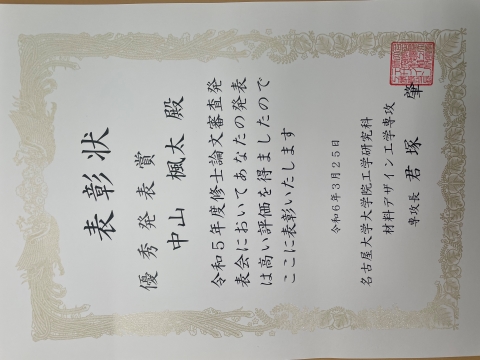 表彰状
優秀発表賞
中山 楓太 殿
令和5年度修士論文審査発
表会においてあなたの発表
は高い評価を得ましたので
ここに表彰いたします
令和6年3月25日
名古屋大学大学院工学研究科
材料デザイン工学専攻
専攻長 君塚 肇